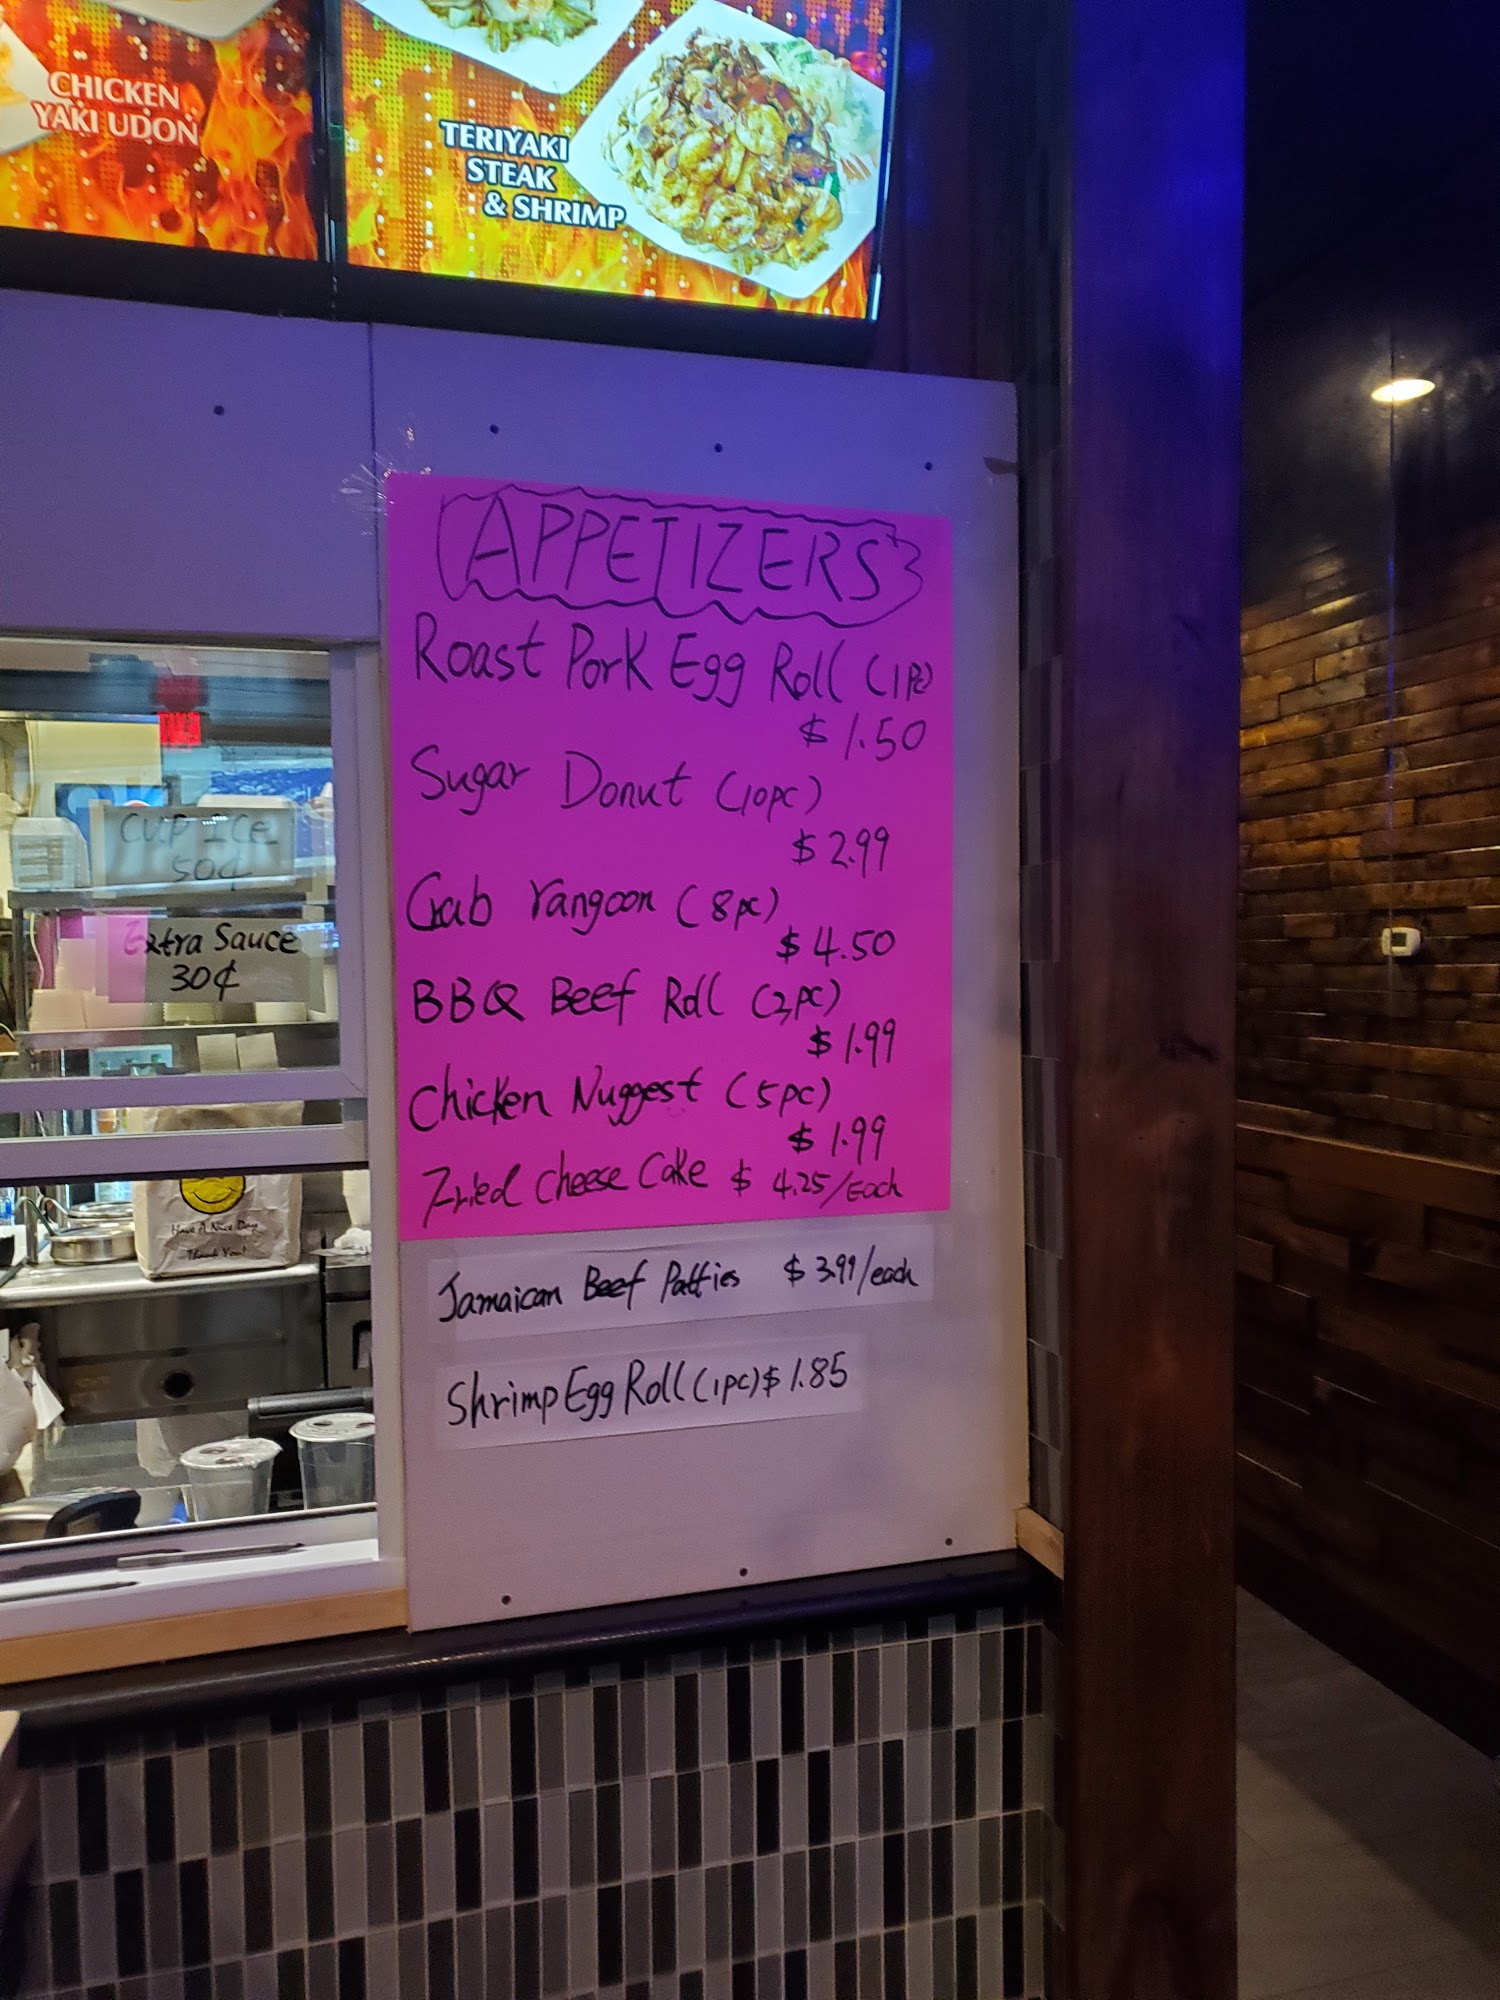 CHICKEN
YAKI UDON
TERIYAKI
STEAK
& SHRIMP
APPETIZERS
Roast Pork Egg Roll (1pc)
$1.50
Sugar Donut (10pc)
$2.99
Crab rangoon (8pc)
$4.50
BBQ Beef Roll (2pc)
$1.99
Chicken Nuggest (5pc)
$1.99
Fried cheese cake $4.25/Each
Jamaican Beef Patties $3.99/each
Shrimp Egg Roll (1pc) $1.85
CUP ICE
50¢
Extra Sauce
30¢
Have A Nice Day
Thank You!